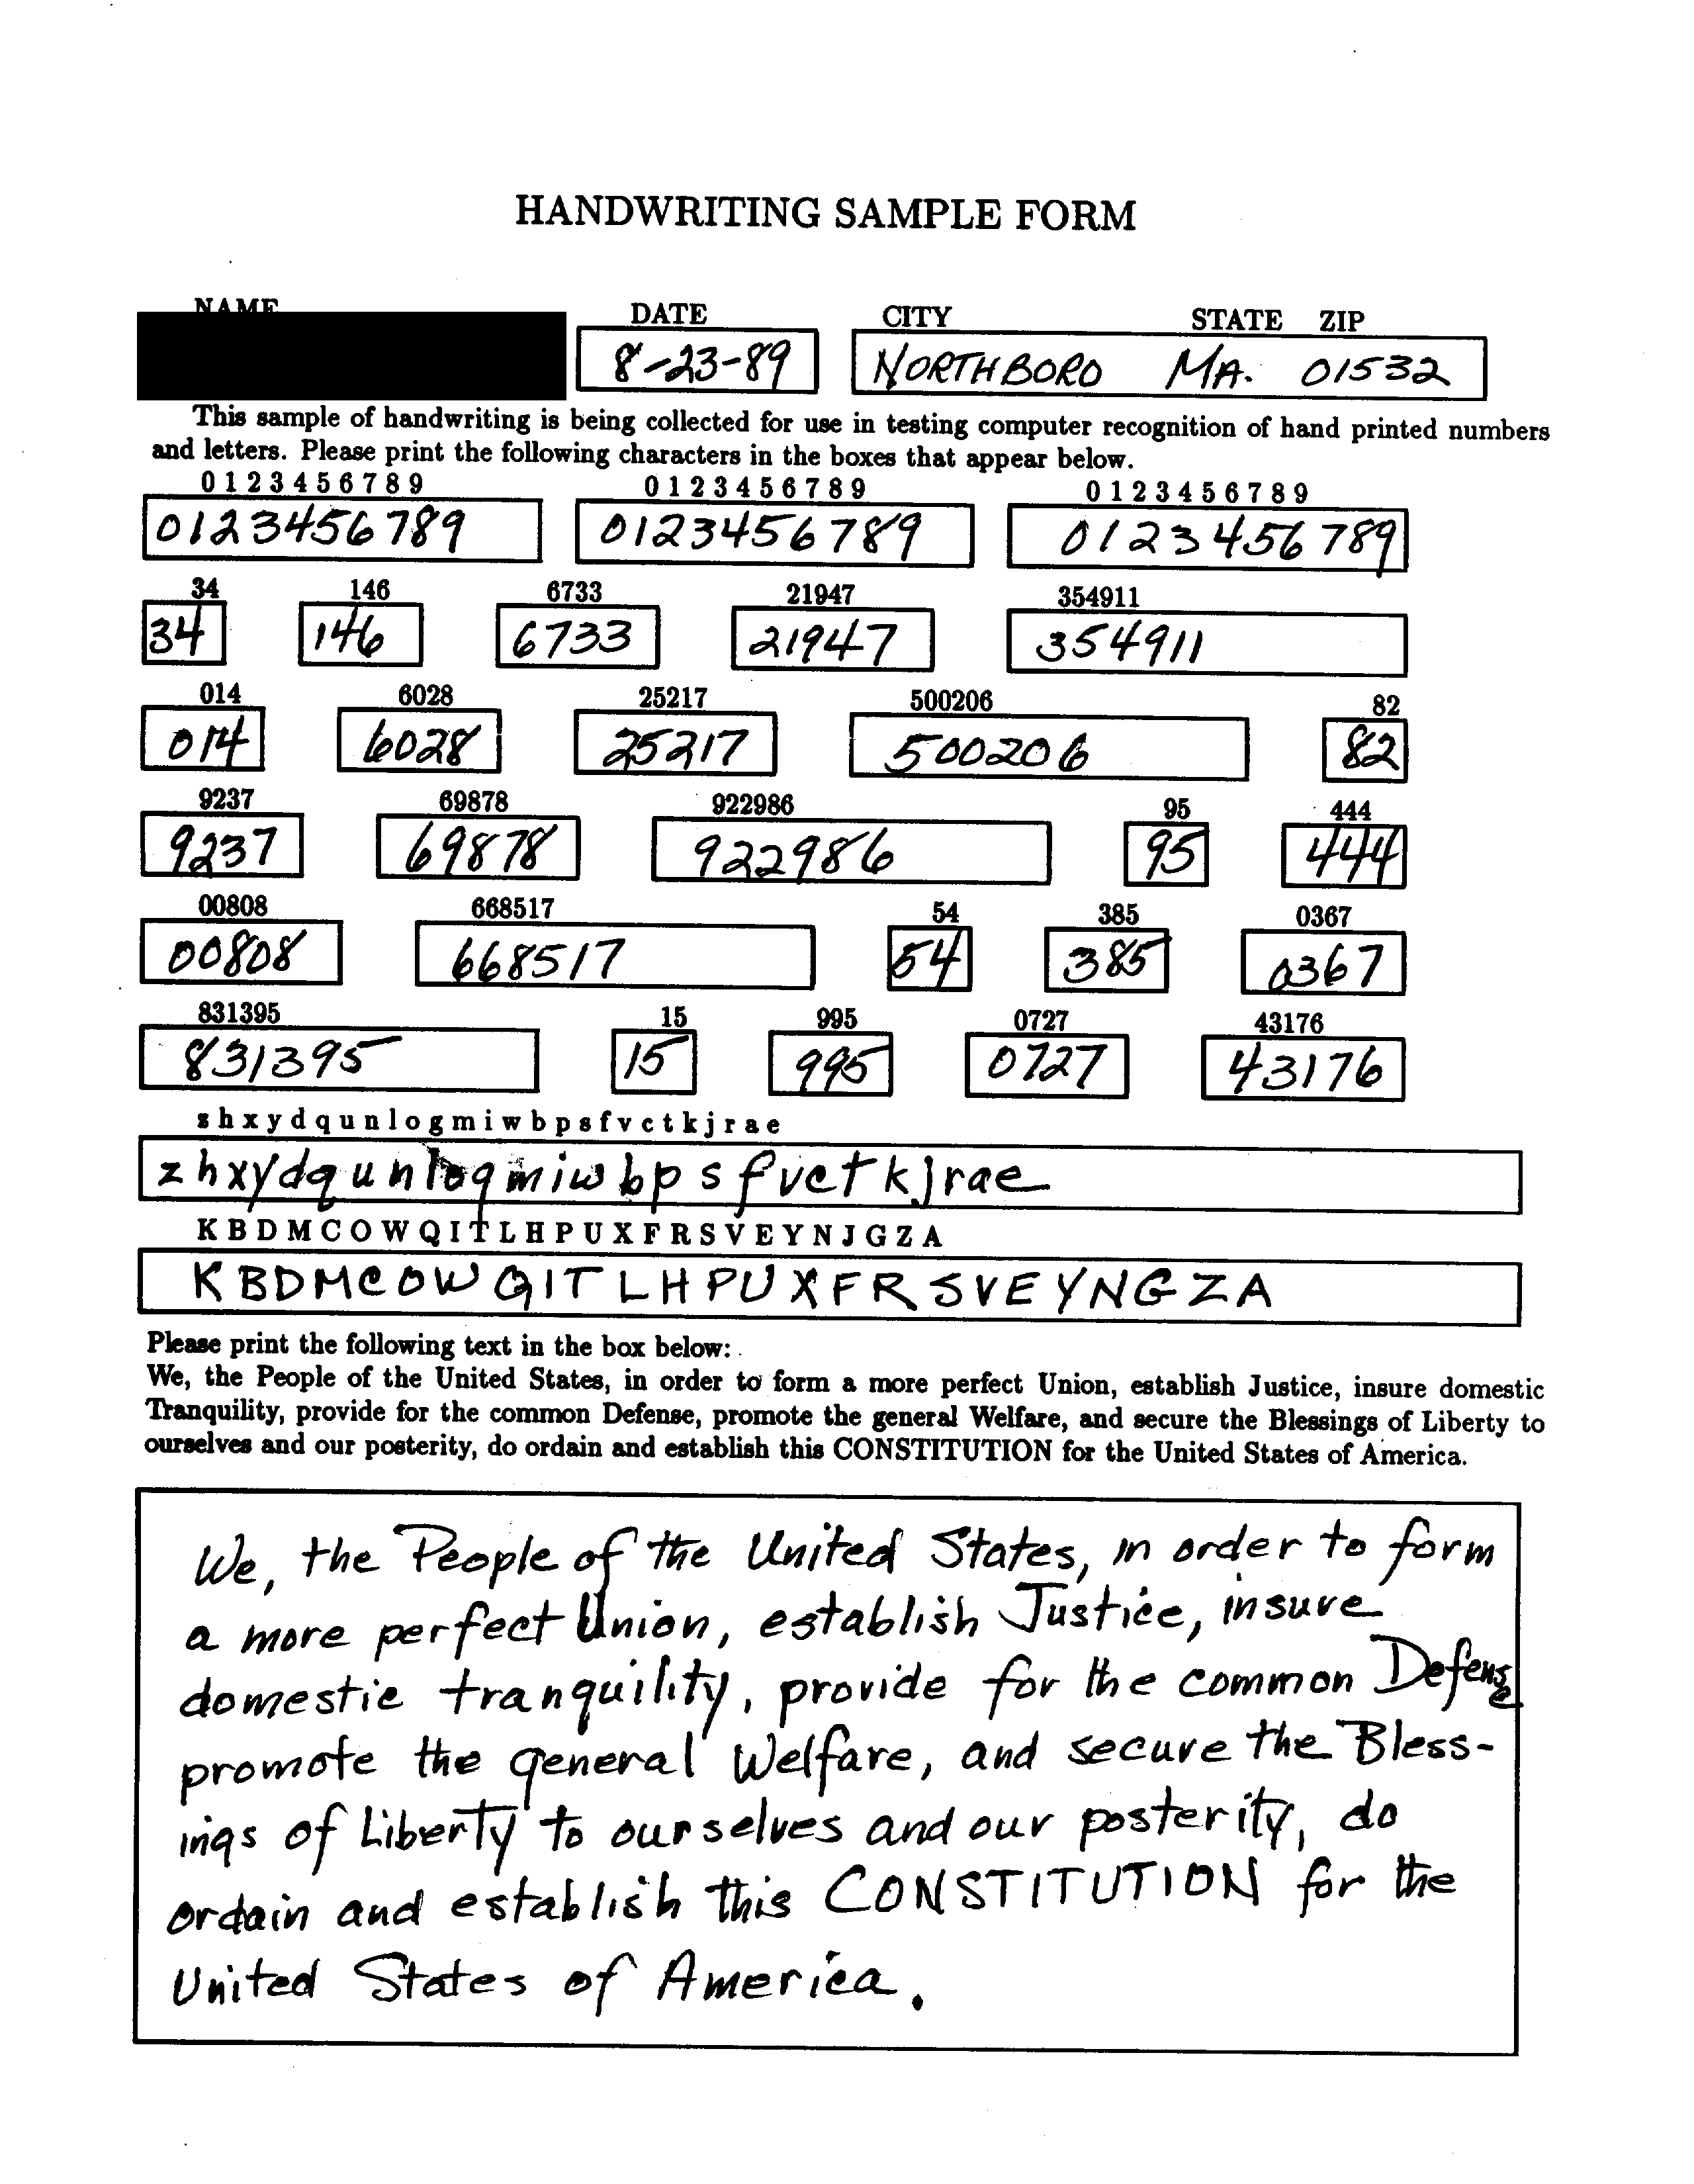 HANDWRITING SAMPLE FORM
NAME DATE CITY STATE ZIP
8-23-89 NORTHBORO MA. 01532
This sample of handwriting is being collected for use in testing computer recognition of hand printed numbers
and letters. Please print the following characters in the boxes that appear below.
0 1 2 3 4 5 6 7 8 9 0 1 2 3 4 5 6 7 8 9 0 1 2 3 4 5 6 7 8 9
0123456789 0123456789 0123456789
34 146 6733 21947 354911
34 146 6733 21947 354911
014 6028 25217 500206 82
014 6028 25217 500206 82
9237 69878 922986 95 444
9237 69878 922986 95 444
00808 668517 54 385 0367
00808 668517 54 385 0367
831395 15 995 0727 43176
831395 15 995 0727 43176
z h x y d q u n l o g m i w b p s f v c t k j r a e
z h x y d q u n l o g m i w b p s f v c t k j r a e
K B D M C O W Q I T L H P U X F R S V E Y N J G Z A
K B D M C O W Q I T L H P U X F R S V E Y N G Z A
Please print the following text in the box below:
We, the People of the United States, in order to form a more perfect Union, establish Justice, insure domestic
Tranquility, provide for the common Defense, promote the general Welfare, and secure the Blessings of Liberty to
ourselves and our posterity, do ordain and establish this CONSTITUTION for the United States of America.
We, the People of the United States, in order to form
a more perfect Union, establish Justice, insure
domestic tranquility, provide for the common Defense
promote the general Welfare, and secure the Bless-
ings of Liberty to ourselves and our posterity, do
ordain and establish this CONSTITUTION for the
United States of America.